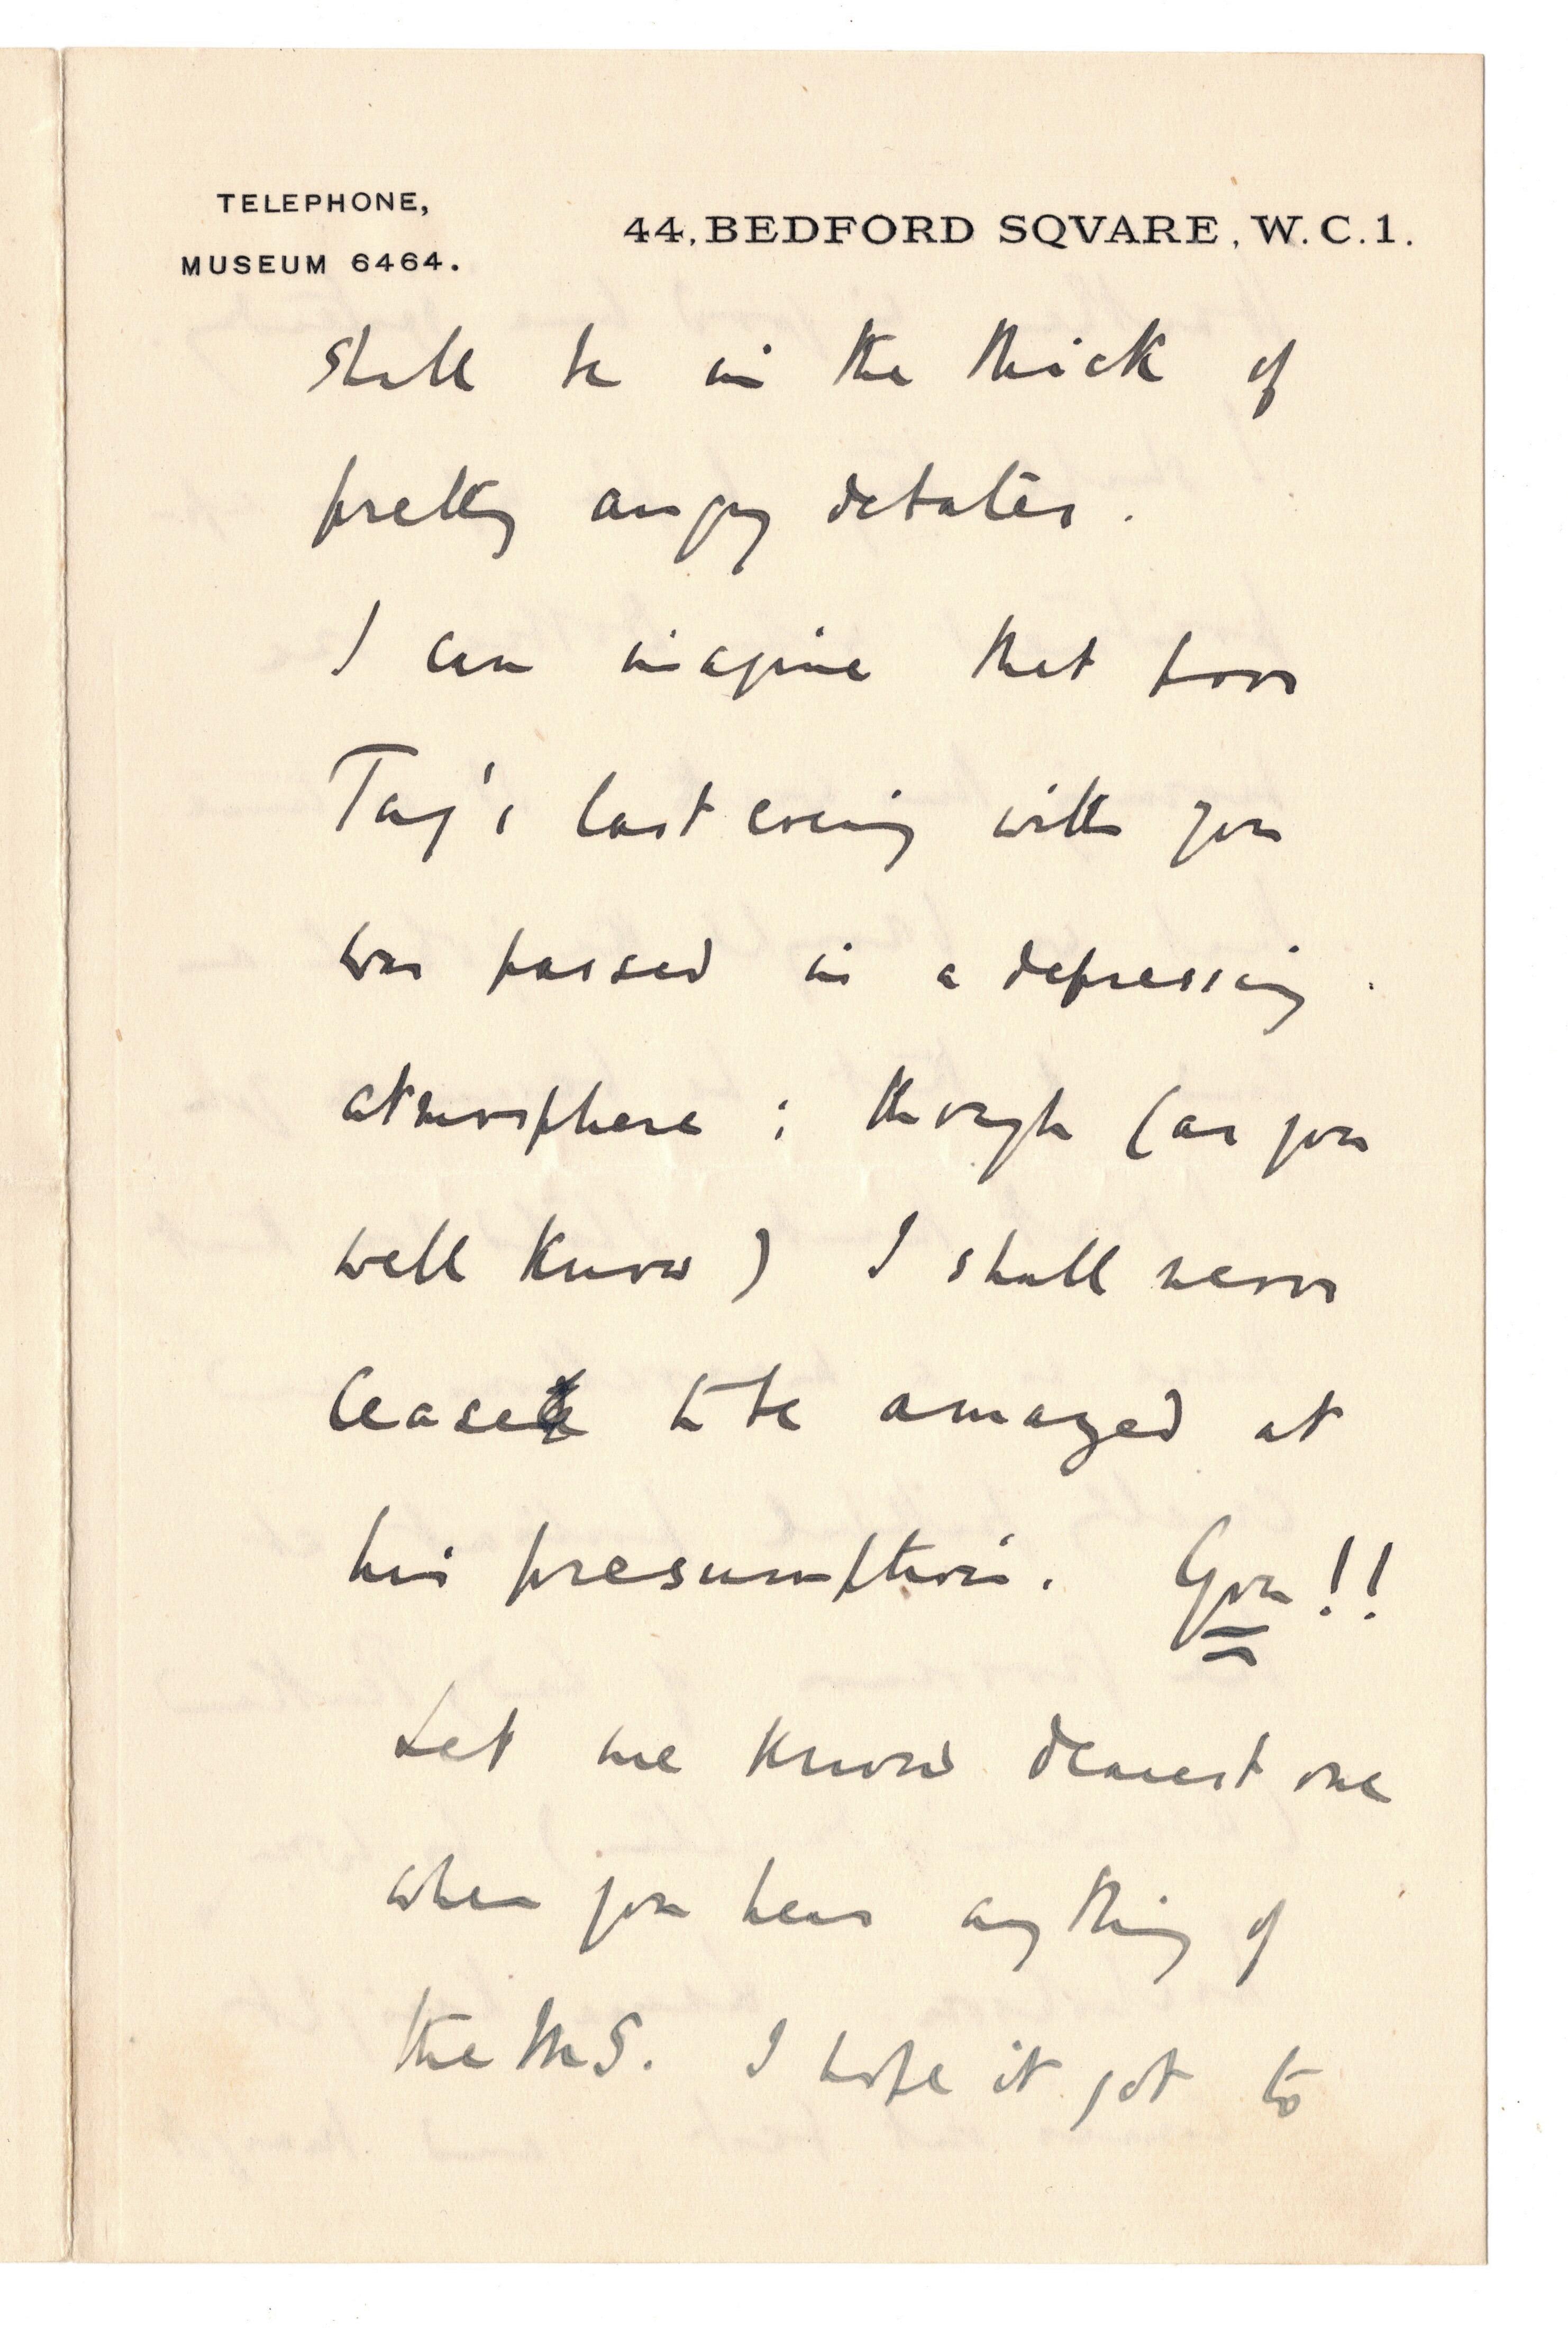 TELEPHONE,
MUSEUM 6464.
44, BEDFORD SQVARE, W.C.1.
shall be in the thick of
pretty angry debates.
I can imagine that poor
Tay's last evening with you
was passed in a depressing
atmosphere; though (as you
well know) I shall never
cease to be amazed at
his presumption. You!!
Let me know dearest one
when you hear anything of
the MS. I hope it got to